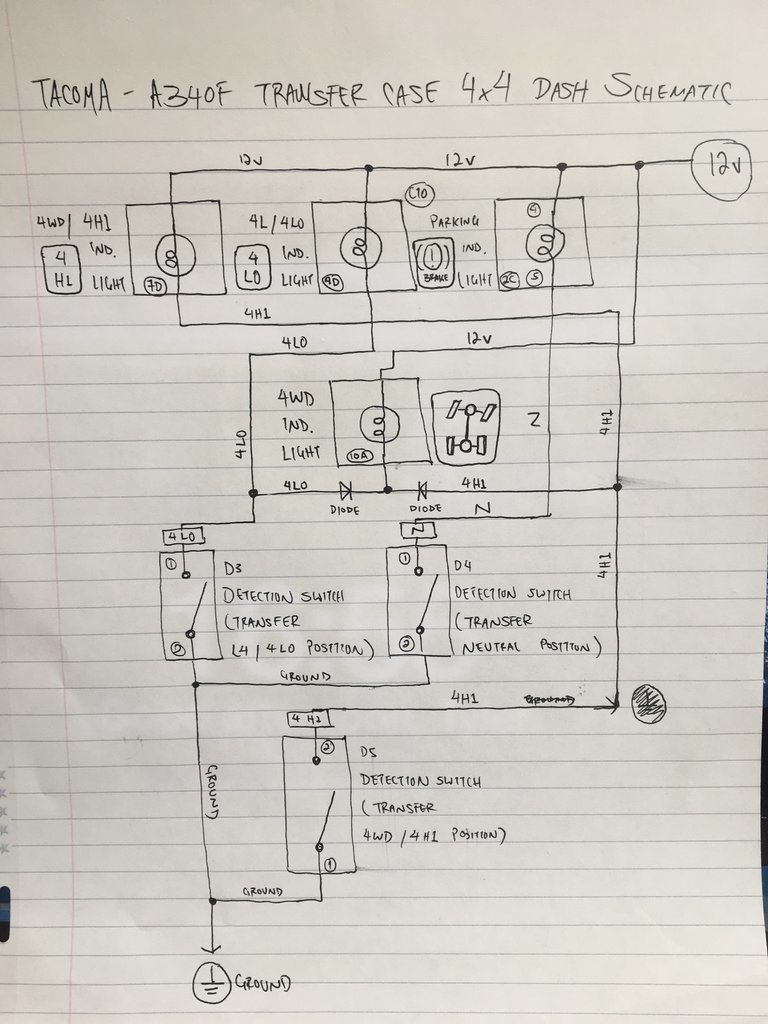 TACOMA - A340F TRANSFER CASE 4x4 DASH SCHEMATIC
12V
12V
12V
C10
4WD/ 4HI
IND.
LIGHT
4
HI
7D
4L/4LO
IND.
LIGHT
4
LO
9D
PARKING
IND.
LIGHT
(( ! ))
BRAKE
4
2C
5
4HI
4LO
12V
4WD
IND.
LIGHT
10A
N
4LO
4HI
4LO
4HI
DIODE
DIODE
N
4LO
N
4HI
1
D3
DETECTION SWITCH
(TRANSFER
L4 / 4LO POSITION)
2
1
D4
DETECTION SWITCH
(TRANSFER
NEUTRAL POSITION)
2
GROUND
4HI
4 HI
2
D5
DETECTION SWITCH
(TRANSFER
4WD / 4HI POSITION)
1
GROUND
GROUND
GROUND